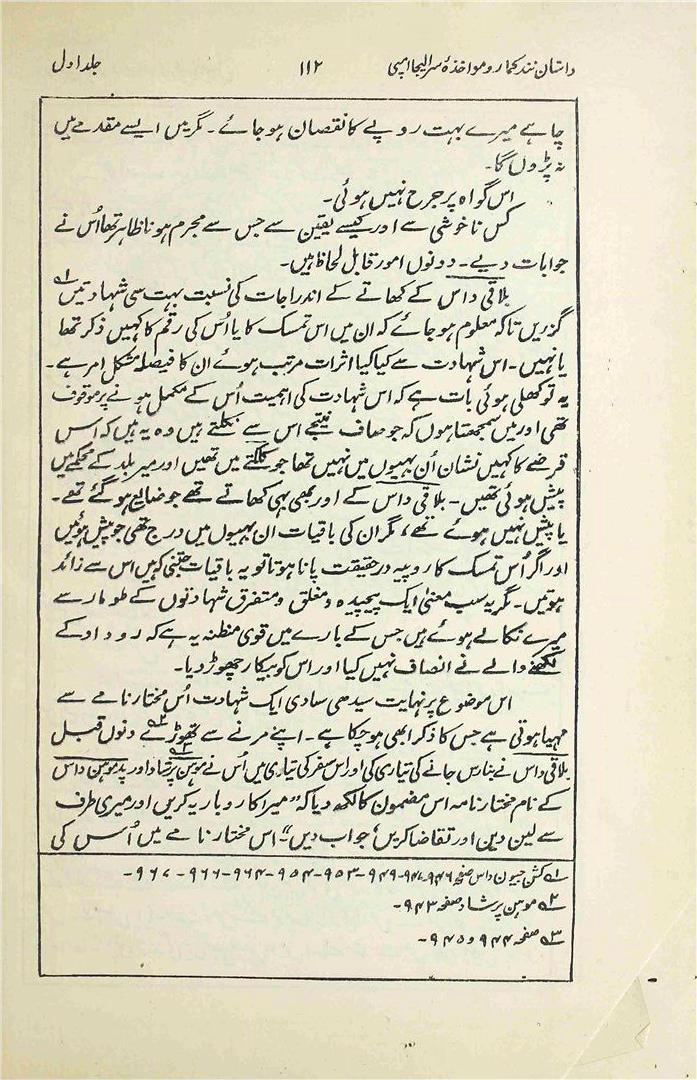 داستان نند کمار و مواخذۂ سر الیجا امپی ۱۱۲ جلد اول
چاہے میرے بہت روپے کا نقصان ہو جائے۔ مگر میں ایسے مقدمے میں
نہ پڑوں گا۔
اس گواہ پر جرح نہیں ہوئی۔
کس ناخوشی سے اور کیسے یقین سے جس سے مجرم ہونا ظاہر تھا اُس نے
جوابات دیے۔ دونوں امور قابل لحاظ ہیں۔
بلاقی داس کے کھاتے کے اندراجات کی نسبت بہت سی شہادتیں ؂۱
گزریں تاکہ معلوم ہو جائے کہ ان میں اس تمسک کا یا اُس کی رقم کا کہیں ذکر تھا
یا نہیں۔ اس شہادت سے کیا کیا اثرات مرتب ہوئے ان کا فیصلہ مشکل امر ہے۔
یہ تو کھلی ہوئی بات ہے کہ اس شہادت کی اہمیت اُس کے مکمل ہونے پر موقوف
تھی اور میں سمجھتا ہوں کہ جو صاف نتیجے اس سے نکلتے ہیں وہ یہ ہیں کہ اس
قرضے کا کہیں نشان اُن بہیوں میں نہیں تھا جو کلکتے میں تھیں اور میر بلد کے محکمے میں
پیش ہوئی تھیں۔ بلاقی داس کے اور بھی بہی کھاتے تھے جو ضایع ہو گئے تھے۔
یا پیش نہیں ہوئے تھے، مگر ان کی باقیات ان بہیوں میں درج تھی جو پیش ہوئیں
اور اگر اُس تمسک کا روپیہ در حقیقت پانا ہوتا تو یہ باقیات جتنی کہ ہیں اس سے زائد
ہوتیں۔ مگر یہ سب معنیٰ ایک پیچیدہ و مغلق و متفرق شہادتوں کے طومار سے
میرے نکالے ہوئے ہیں جس کے بارے میں قوی مظنہ یہ ہے کہ روداد کے
لکھنے والے نے انصاف نہیں کیا اور اس کو بیکار چھوڑ دیا۔
اس موضوع پر نہایت سیدھی سادی ایک شہادت اُس مختارنامے سے
مہیا ہوتی ہے جس کا ذکر ابھی ہو چکا ہے۔ اپنے مرنے سے تھوڑے ؂۲ دنوں قبل
بلاقی داس نے بنارس جانے کی تیاری کی اور اس سفر کی تیاری میں اُس نے موہن پرشاد ؂۳ اور پدموہن داس
کے نام مختارنامہ اس مضمون کا لکھ دیا کہ "میرا کاروبار یہ کریں اور میری طرف
سے لین دین اور تقاضا کریں؛ جواب دیں"۔ اس مختارنامے میں اُس کی
؂۱ کشن جیون داس صفحہ ۹۴۶-۹۴۷-۹۴۹-۹۵۳-۹۵۴-۹۶۴-۹۶۶-۹۶۷-
؂۲ موہن پرشاد صفحہ ۹۴۳-
؂۳ صفحہ ۹۴۴ و ۹۴۵-